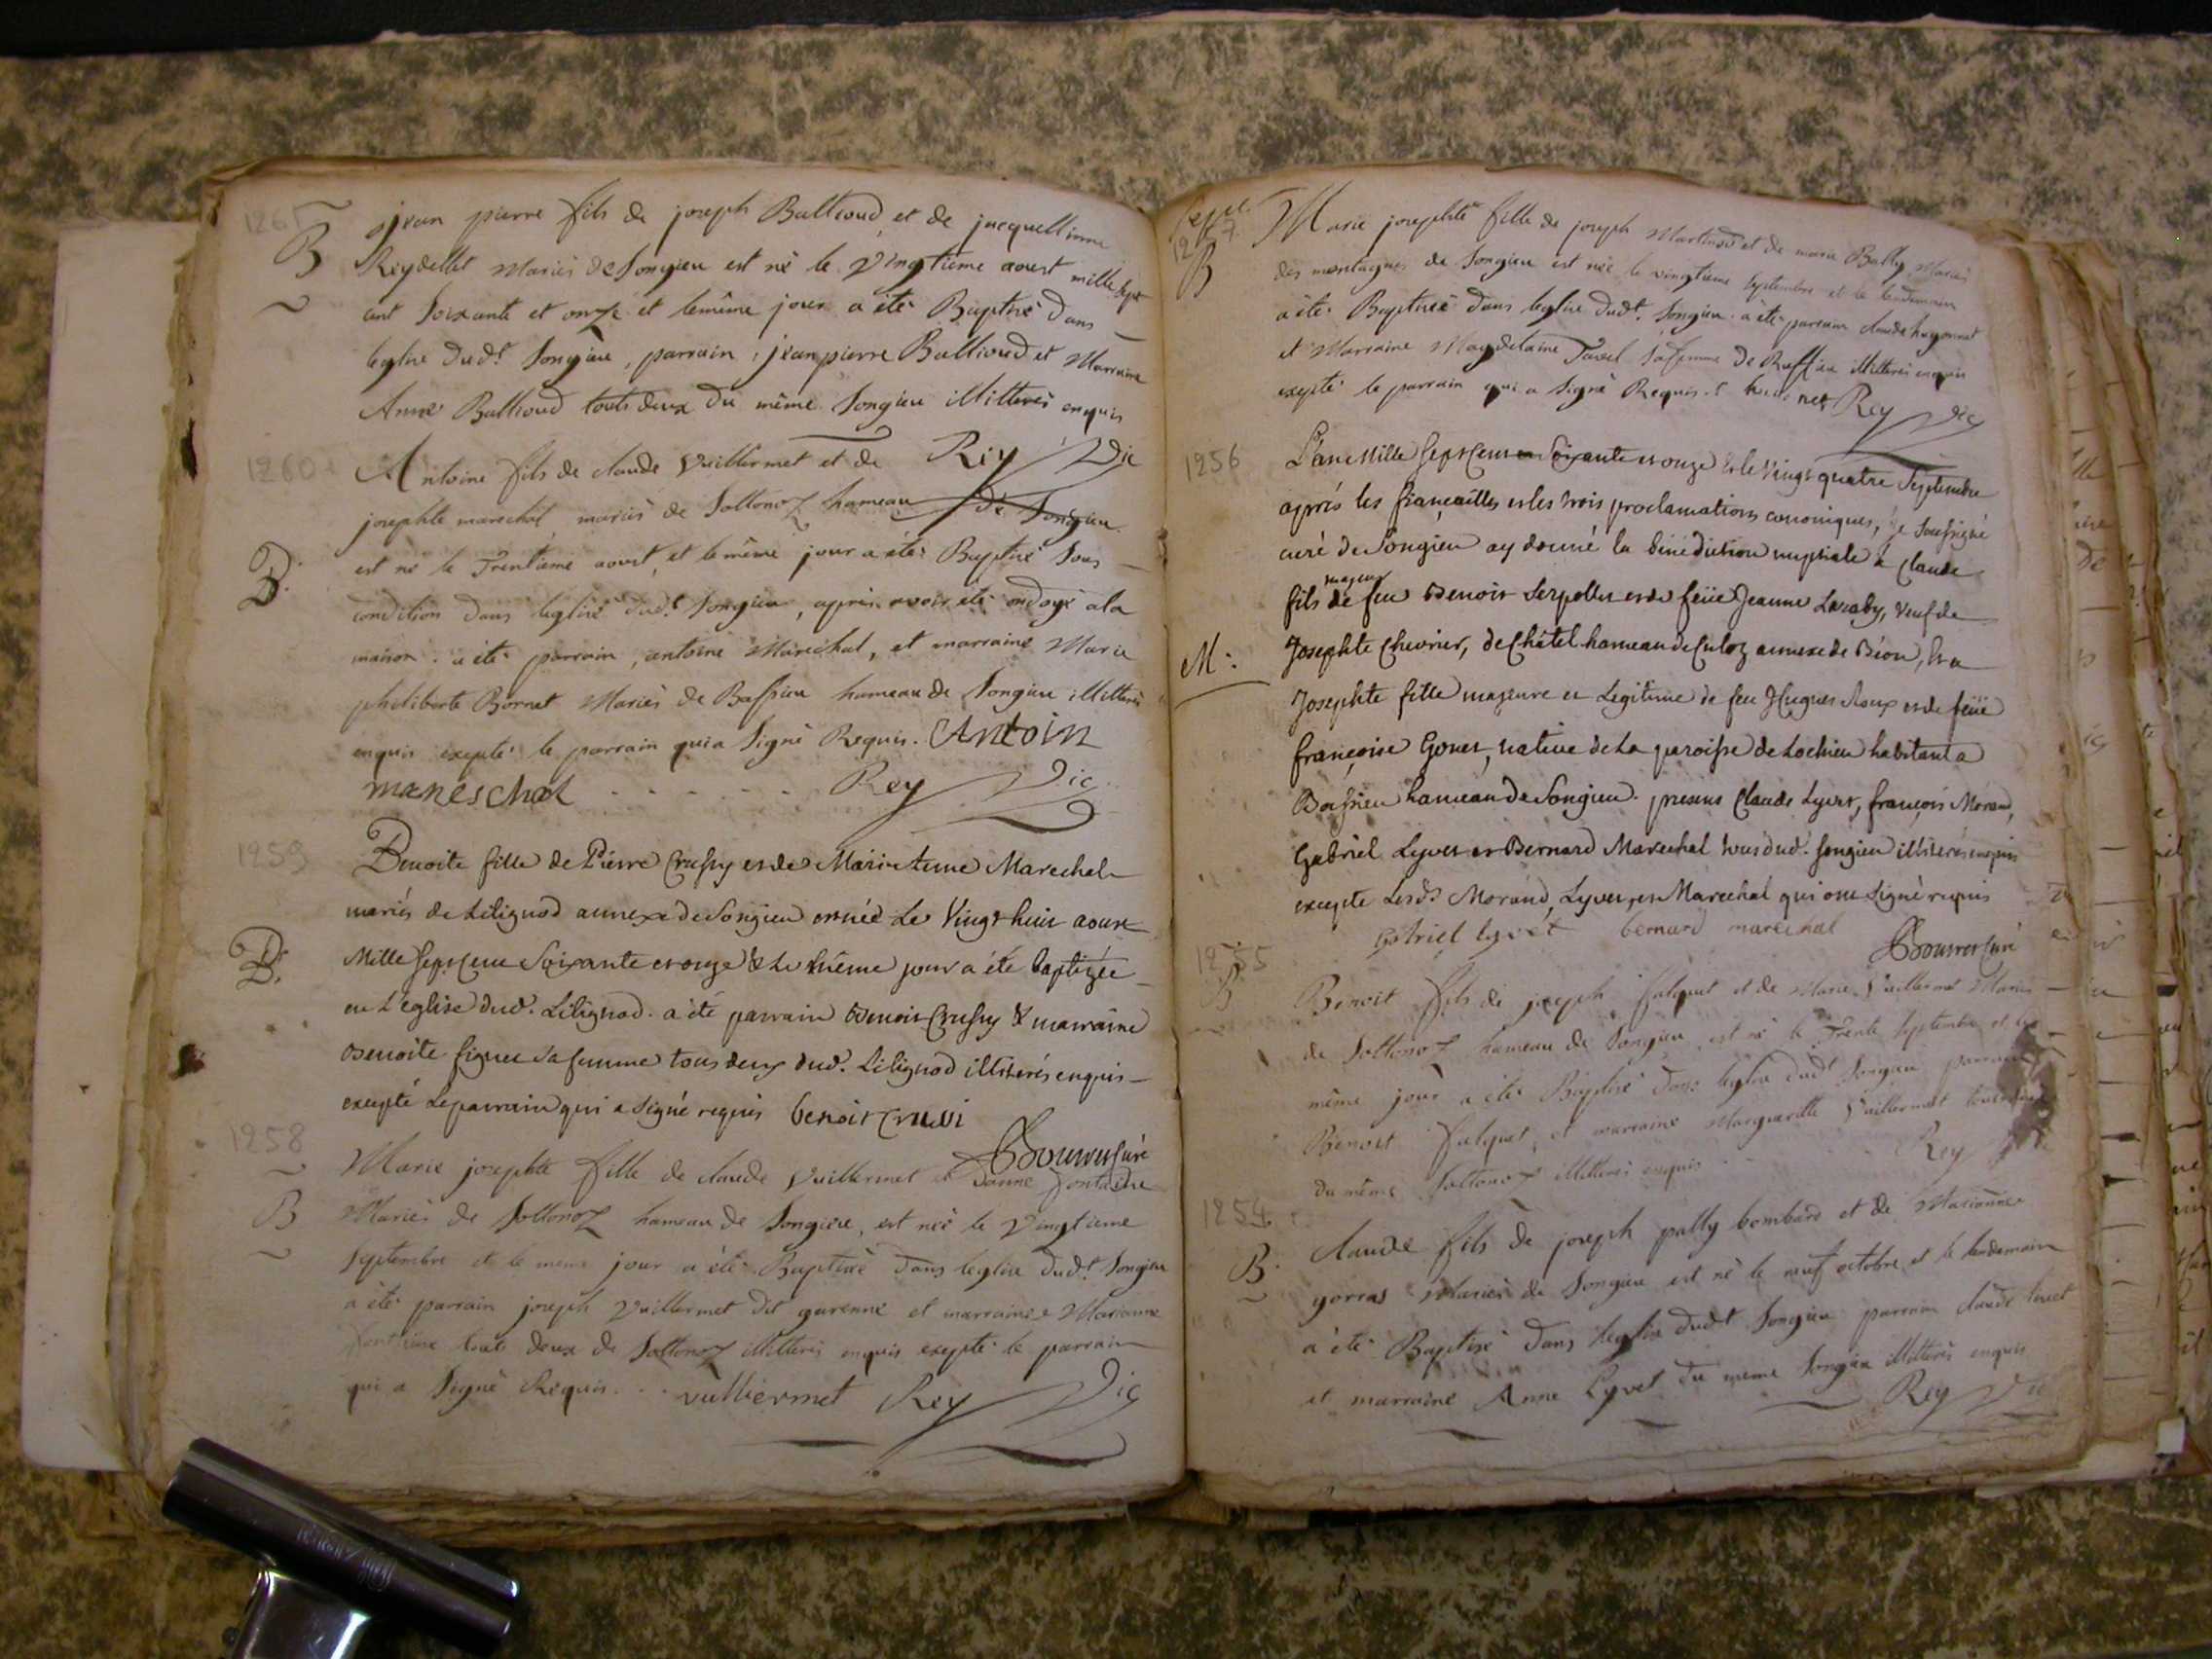 1261
B
jean pierre fils de joseph Ballioud et de jacquellinne
Reydellet Mariés de Songieu est né le vingtieme aoust mille sept
cent soixante et onze et le même jour a été Baptisé dans
leglise dudt. Songieu, parrain, jean pierre Ballioud et Marraine
Anne Ballioud touts deux du même Songieu illitterés enquis
Rey Vic
1260
B.
Antoine fils de claude Vuillermet et de
josephte marechal mariés de Sottonoz hameau de Songieu
est né le Trentieme aoust, et le même jour a été Baptisé sous
condition dans leglise dudt. Songieu, apres avoir été ondoyé a la
maison. a été parrain, antoine Maréchal, et marraine Marie
philiberte Bornet Mariés de Bassieu hameau de Songieu illitterés
enquis excepté le parrain qui a signé Requis. Antoin
mareschal Rey Vic
1259
B.
Benoite fille de Pierre Crussy et de Marie Marechal
mariés de Lilignod annexe de Songieu est née le Vingt huit aoust
Mille sept cent soixante et onze & le même jour a été baptizée
en L'eglise dud. Lilignod. a été parrain Benoit Crussy & marraine
Benoite sa femme tous deux dud. Lilignod illiterés enquis
excepté le parrain qui a signé requis benoit Crussi
Bouvet Curé
1258
B
Marie josephte fille de claude Vuillermet et Fontaine
Mariés de Sottonoz hameau de Songieu, est née le Vingtieme
septembre et le meme jour a été Baptisée dans leglise dudt. Songieu
a été parrain joseph Vuillermet dit garenne et marraine Marianne
fontaine tout deux de Sottonoz illitterés enquis excepté le parrain
qui a signé Requis. vulliermet Rey Vic
1257
B
Marie josephte fille de joseph et de marie Bally Mariés
des montagnes de Songieu est née le vingtieme septembre et le lendemain
a été Baptisée dans leglise dudt. Songieu. a été parrain claude hugonnet
et Marraine Magdelaine Tavel sa femme de Ruffieu illitterés enquis
excepté le parrain qui a signé Requis. Rey Vic
1256
M.
L'an Mille sept cent soixante et onze & le Vingt quatre Septembre
après les fiançailles et les trois proclamations canoniques, je soussigné
curé de Songieu ay donné la bénédiction nuptiale à Claude
majeur
fils de feu Benoit Serpollet et de feüe Jeanne veuf de
Josephte Chevrier, de Châtel hameau de Culoz annexe de Béon, & a
Josephte fille majeure et Legitime de feu Hugues Roux et de feüe
françoise Gonet, native de La paroisse de Lochieu habitant a
Bassieu hameau de Songieu. presens Claude Lyvet, françois Morand,
Gabriel Lyvet et Bernard Marechal tous dud. songieu illiterés enquis
excepte Lesds Morand, Lyvet, et Marechal qui ont signé requis
Gabriel lyvet bernard marechal
Bouvet Curé
1255
B
Benoit fils de joseph falquet et de Marie Vuillermet Mariés
de Sottonoz hameau de Songieu est né le Trente septembre et le
même jour a été Baptisé dans leglise dudt Songieu parrain
Benoit falquet, et marraine Marguerite Vuillermet
du même Sottonoz illitterés enquis Rey
1254
B.
claude fils de joseph pally bombard et de Marianne
gorras Mariés de Songieu est né le neuf octobre et le lendemain
a été Baptisé dans leglise dudt Songieu parrain claude
et marraine Anne Lyvet du meme Songieu illitterés enquis
Rey Vic